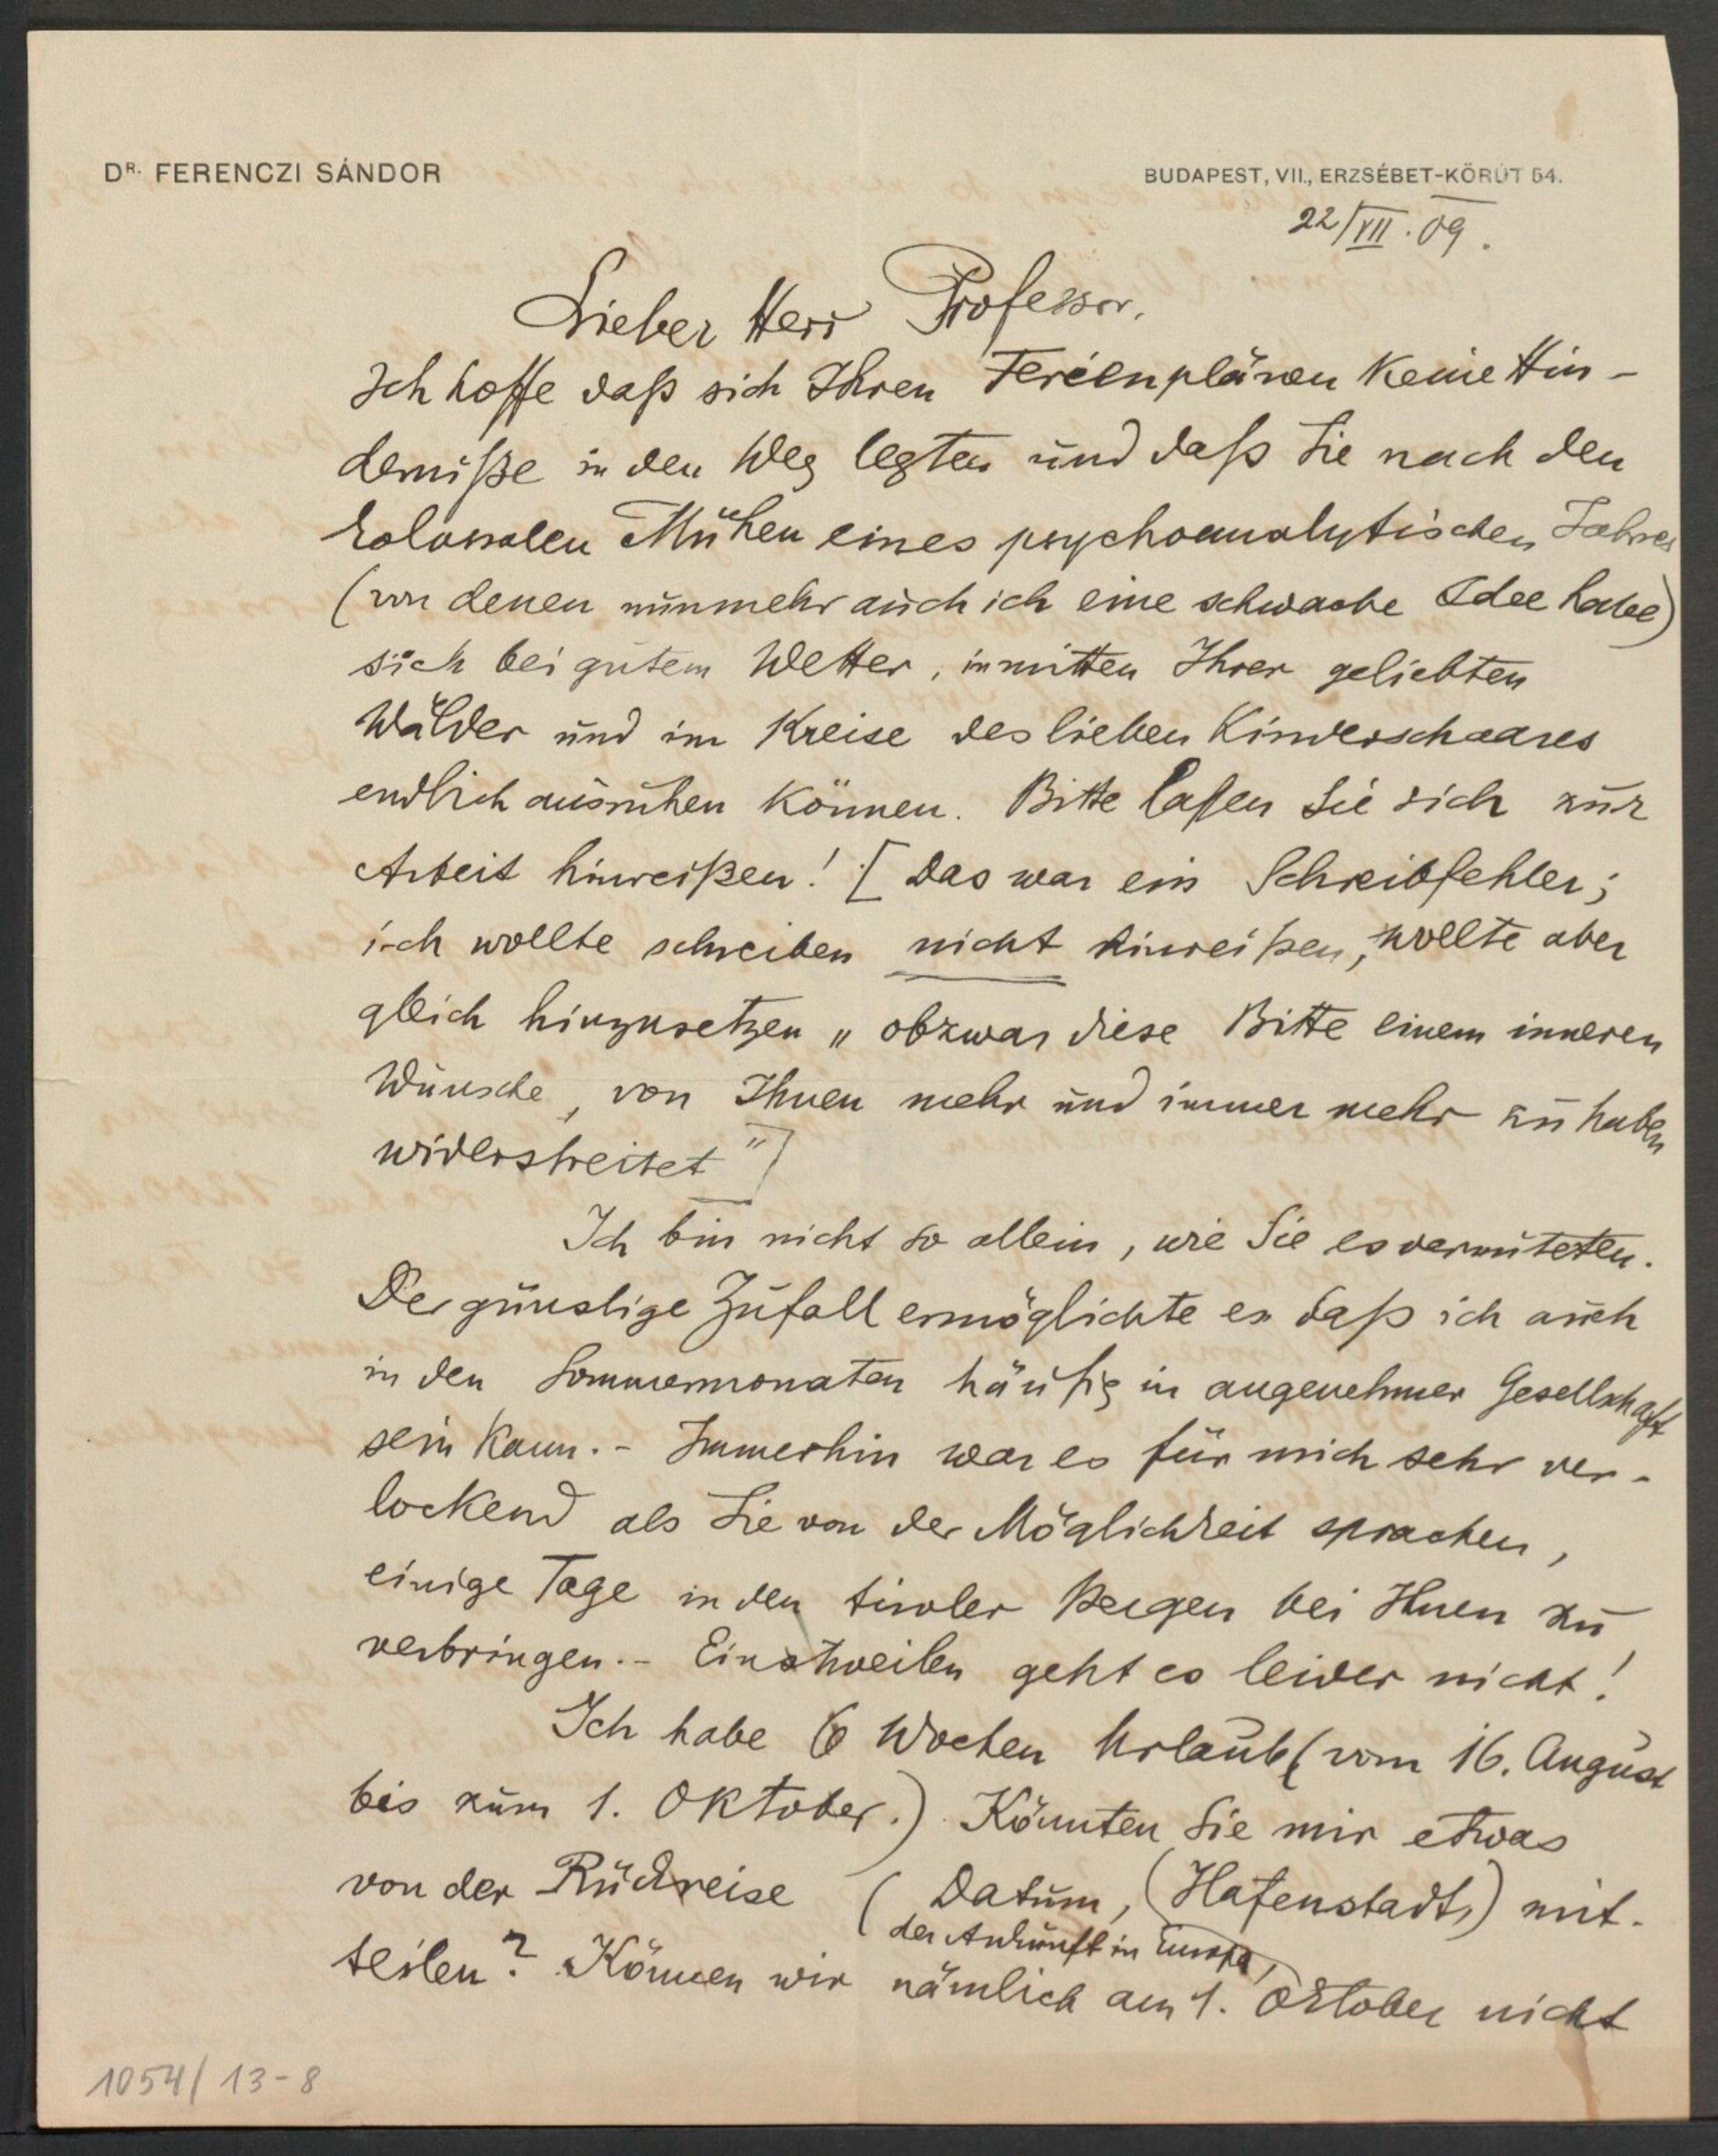 DR. FERENCZI SÁNDOR
BUDAPEST, VII., ERZSÉBET-KÖRÚT 54.
22/VII. 09.
Lieber Herr Professor,
Ich hoffe daß sich Ihren Ferienplänen keine Hin-
derniße in den Weg legten und daß Sie nach den
kolossalen Mühen eines psychoanalytischen Jahres
(von denen nunmehr auch ich eine schwache Idee habe)
sich bei gutem Wetter, inmitten Ihrer geliebten
Wälder und im Kreise des lieben Kinderschaares
endlich ausruhen können. Bitte laßen Sie sich zur
Arbeit hinreißen! [Das war ein Schreibfehler;
ich wollte schreiben nicht hinreißen, wollte aber
gleich hinzusetzen „obzwar diese Bitte einem inneren
Wunsche, von Ihnen mehr und immer mehr zu haben
widerstreitet"]
Ich bin nicht so allein, wie Sie es vermuteten.
Der günstige Zufall ermöglichte es daß ich auch
in den Sommermonaten häufig in angenehmer Gesellschaft
sein kann.- Immerhin war es für mich sehr ver-
lockend als Sie von der Möglichkeit sprachen,
einige Tage in den tiroler Bergen bei Ihnen zu
verbringen.- Einstweilen geht es leider nicht!
Ich habe 6 Wochen Urlaub (vom 16. August
bis zum 1. Oktober.) Könnten Sie mir etwas
von der Rückreise (Datum, (Hafenstadt,) mit-
der Ankunft in Europa,
teilen? Können wir nämlich am 1. Oktober nicht
1054/13-8